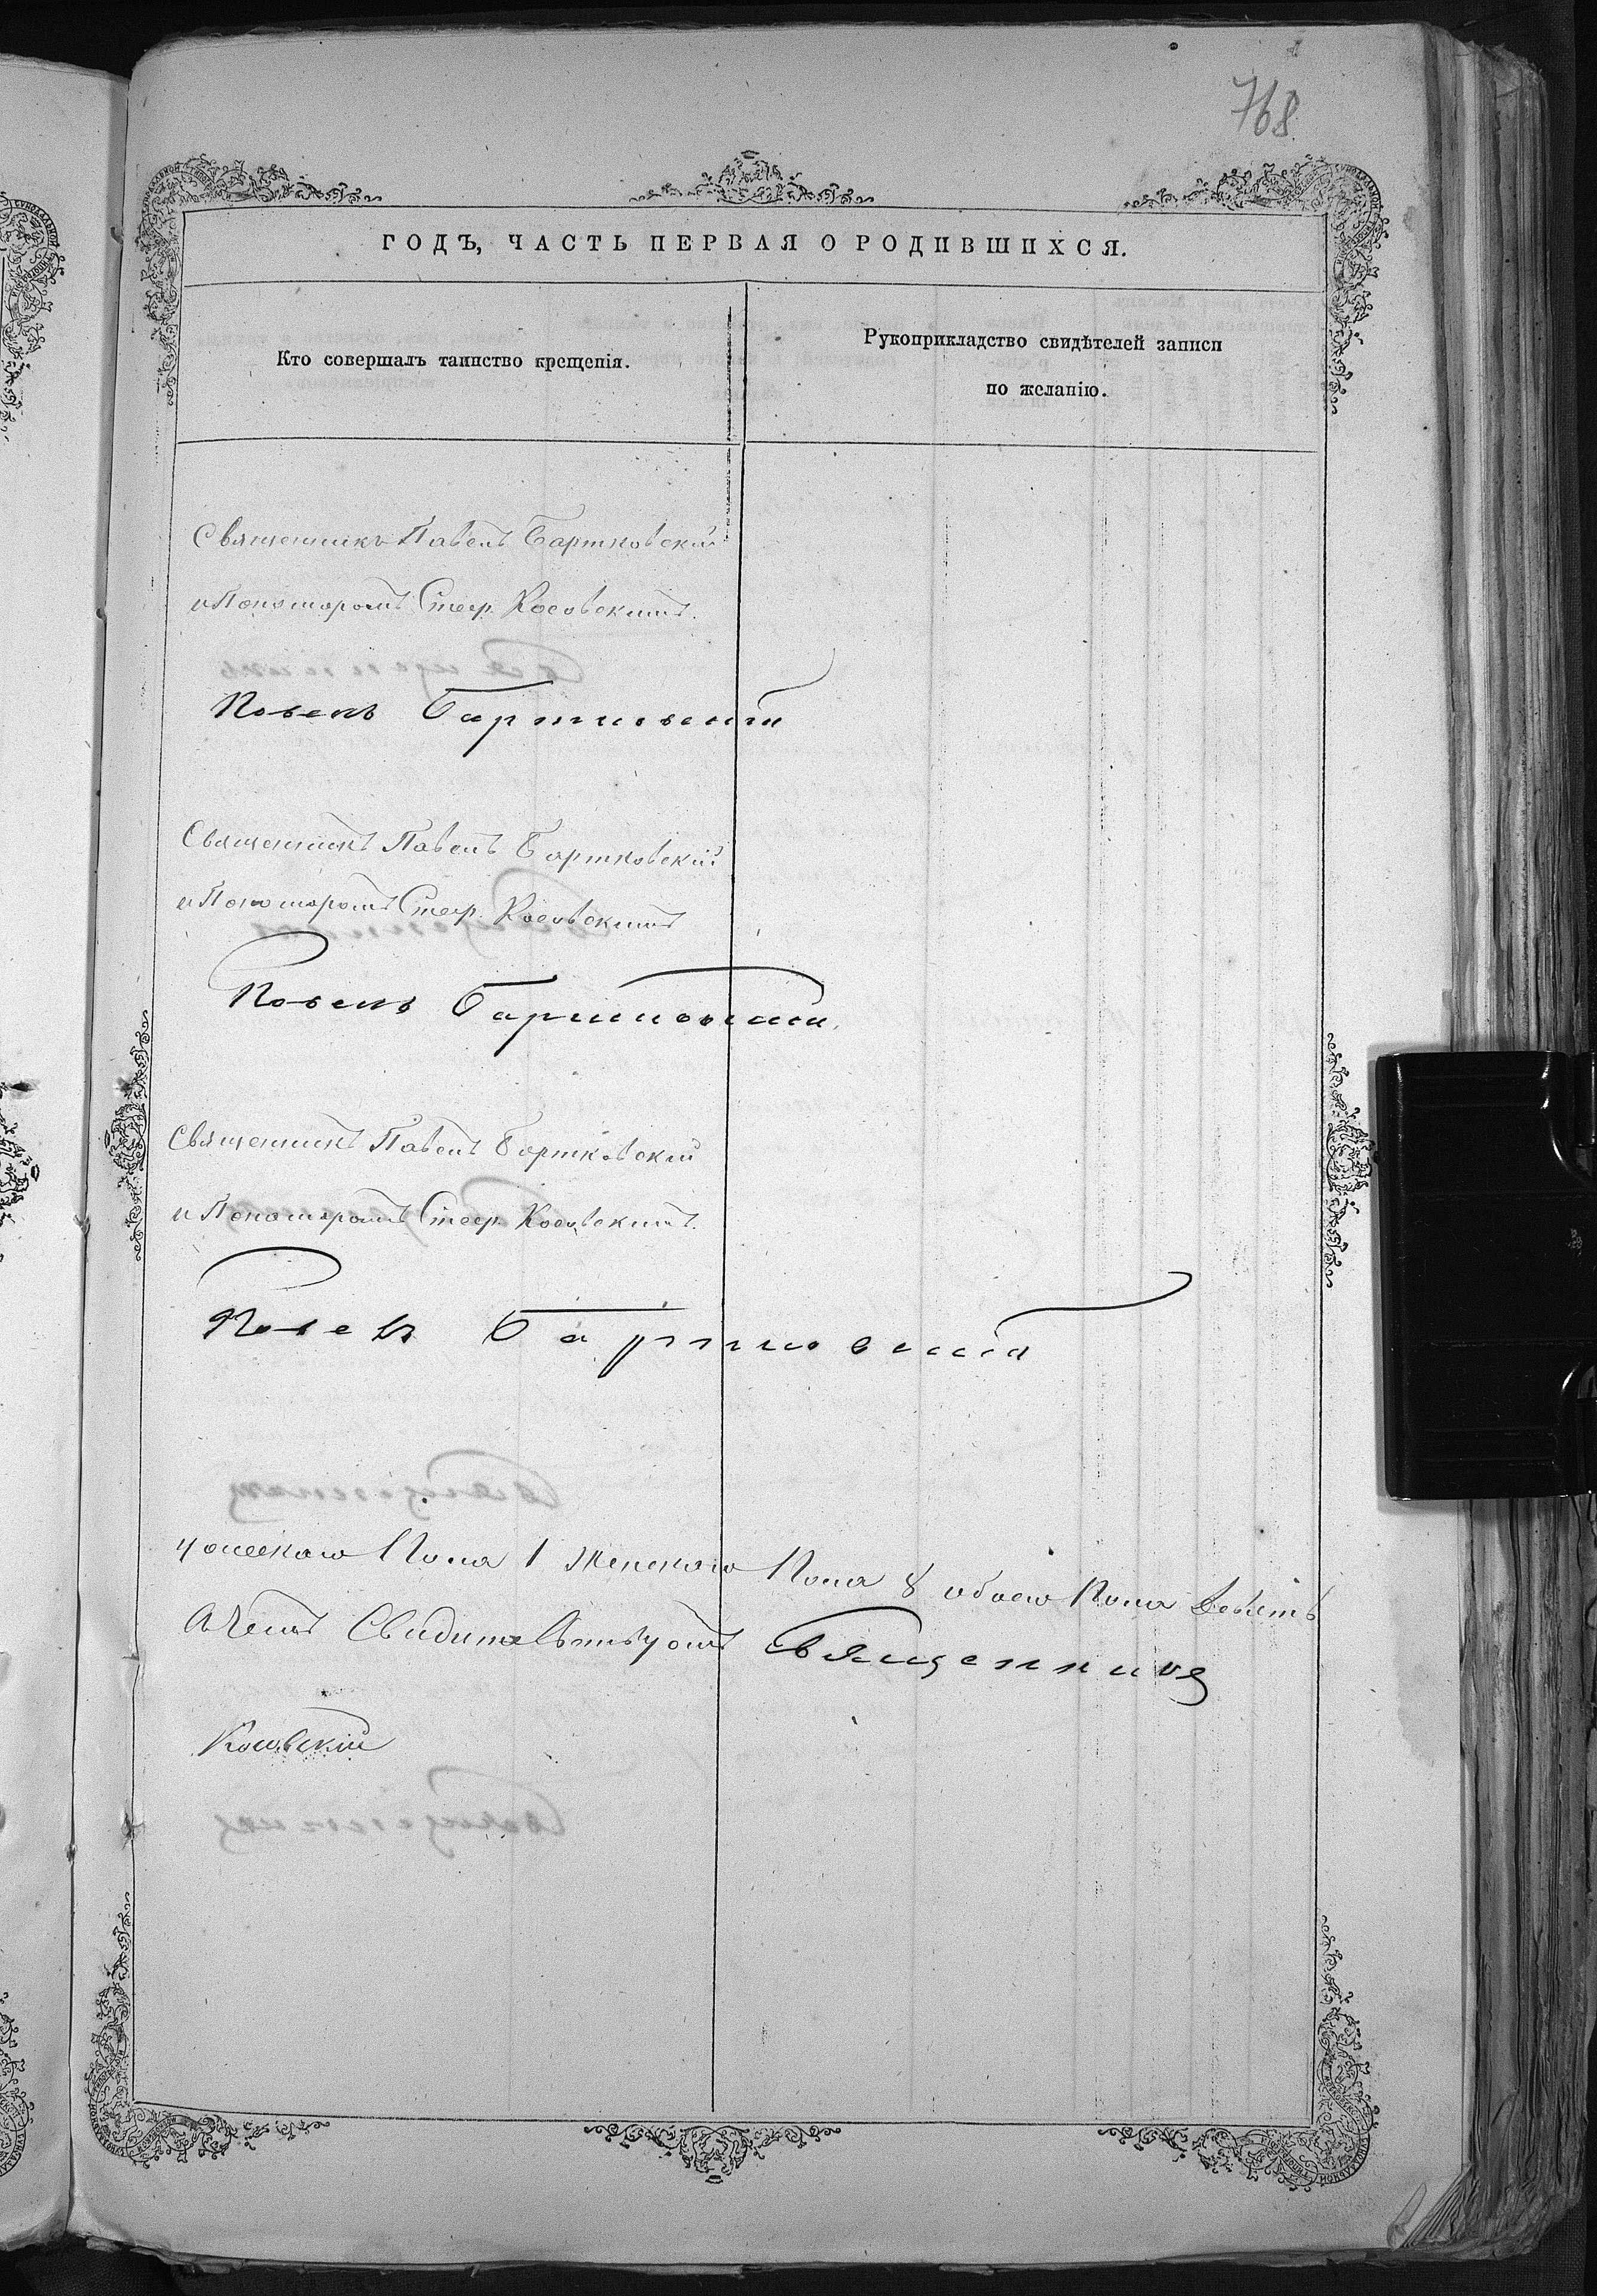 768
ГОДЪ, ЧАСТЬ ПЕРВАЯ О РОДИВШИХСЯ.
Кто совершалъ таинство крещенія.
Рукоприкладство свидѣтелей записи
по желанію.
Священникъ Павелъ Бартковскій
и Пономаромъ Стеф. Косовскимъ.
Павелъ Бартковскій
Священникъ Павелъ Бартковскій
и Пономаромъ Стеф. Косовскимъ
Павелъ Бартковскій
Священникъ Павелъ Бартковскій
и Пономаромъ Стеф. Косовскимъ.
Павелъ Бартковскій
Пола 1 женскаго Пола 8 обоего Пола девять
Священникъ
Косовскій